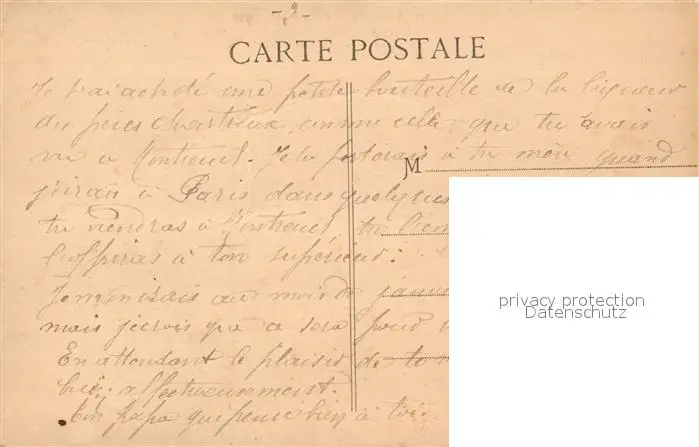 - 2 -
CARTE POSTALE
Je t'ai acheté une petite bouteille de la liqueur
des pères chartreux, comme celle que tu avais
vu à Montreuil. Je la porterais à ta mère quand
M
j'irai à Paris dans quelques
tu viendras à Montreuil tu
l'offriras à ton supérieur.
Je m'en irais au mois de janvi
mais je crois que ce sera pour
En attendant le plaisir de te
bien affectueusement.
Ton papa qui pense bien à toi.
privacy protection
Datenschutz